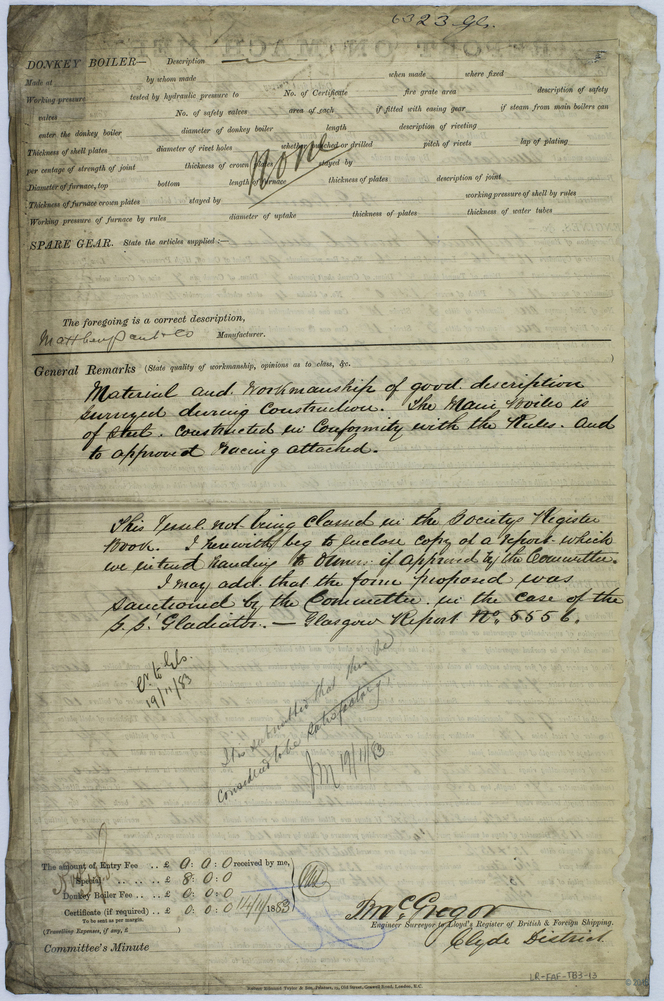 6323 Gls.
DONKEY BOILER— Description
Made at by whom made when made where fixed
Working pressure tested by hydraulic pressure to No. of Certificate fire grate area description of safety
valves No. of safety valves area of each if fitted with easing gear if steam from main boilers can
enter the donkey boiler diameter of donkey boiler length description of riveting
Thickness of shell plates diameter of rivet holes whether punched or drilled pitch of rivets lap of plating
per centage of strength of joint thickness of crown plates stayed by
None
Diameter of furnace, top bottom length of furnace thickness of plates description of joint
Thickness of furnace crown plates stayed by working pressure of shell by rules
Working pressure of furnace by rules diameter of uptake thickness of plates thickness of water tubes
SPARE GEAR. State the articles supplied:—
The foregoing is a correct description,
Matthew Paul & Co Manufacturer.
General Remarks (State quality of workmanship, opinions as to class, &c. )
Material and Workmanship of good description
surveyed during Construction. The Main Boiler is
of Steel. constructed in Conformity with the Rules. and
to approved tracing attached.
This Vessel not being classed in the Societys Register
Book. I herewith beg to enclose copy of a report which
we intend handing to Owner if approved by the Committee.
I may add that the form proposed was
sanctioned by the Committee. in the case of the
S.S. 'Gladiator. — Glasgow Report No. 5556.
19/11/83
It is submitted that this be
considered to be satisfactory.
19/11/83
The amount of Entry Fee .. £ 0 : 0 : 0 received by me,
Special .. .. £ 8 : 0 : 0
Donkey Boiler Fee .. .. £ 0 : 0 : 0
Certificate (if required) .. £ 0 : 0 : 0 14/11/1883
To be sent as per margin.
(Travelling Expenses, if any, £ )
Committee's Minute
McGregor
Engineer Surveyor to Lloyd's Register of British & Foreign Shipping.
Clyde District
LR-FAF-TB3-13